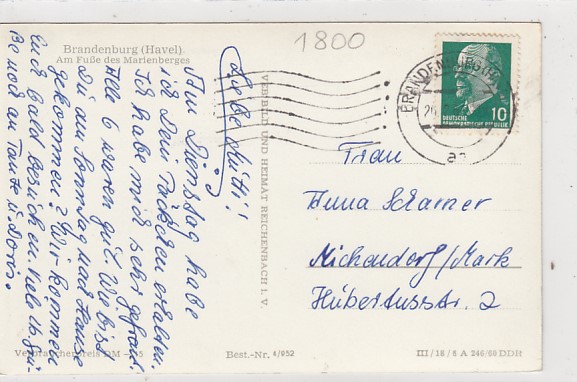 1800
Brandenburg (Havel)
Am Fuße des Marienberges
Liebe Mutti!
Am Dienstag habe
ich Dein Päckchen erhalten.
Ich habe mich sehr gefreut.
Alle 6 waren gut. Wie bist
Du am Sonntag nach Hause
gekommen? Wir kommen
Euch bald besuchen. Viele Grü-
ße noch an Tante u. Doris.
VERBILD UND HEIMAT REICHENBACH i. V.
BRANDENBURG (HAVEL)
an
10
DEUTSCHE
DEMOKRATISCHE REPUBLIK
Frau
Anna Scharner
Michendorf/Mark
Hubertusstr. 2
Verbraucherpreis DM
Best.-Nr. 4/952
III/18/6 A 246/60 DDR